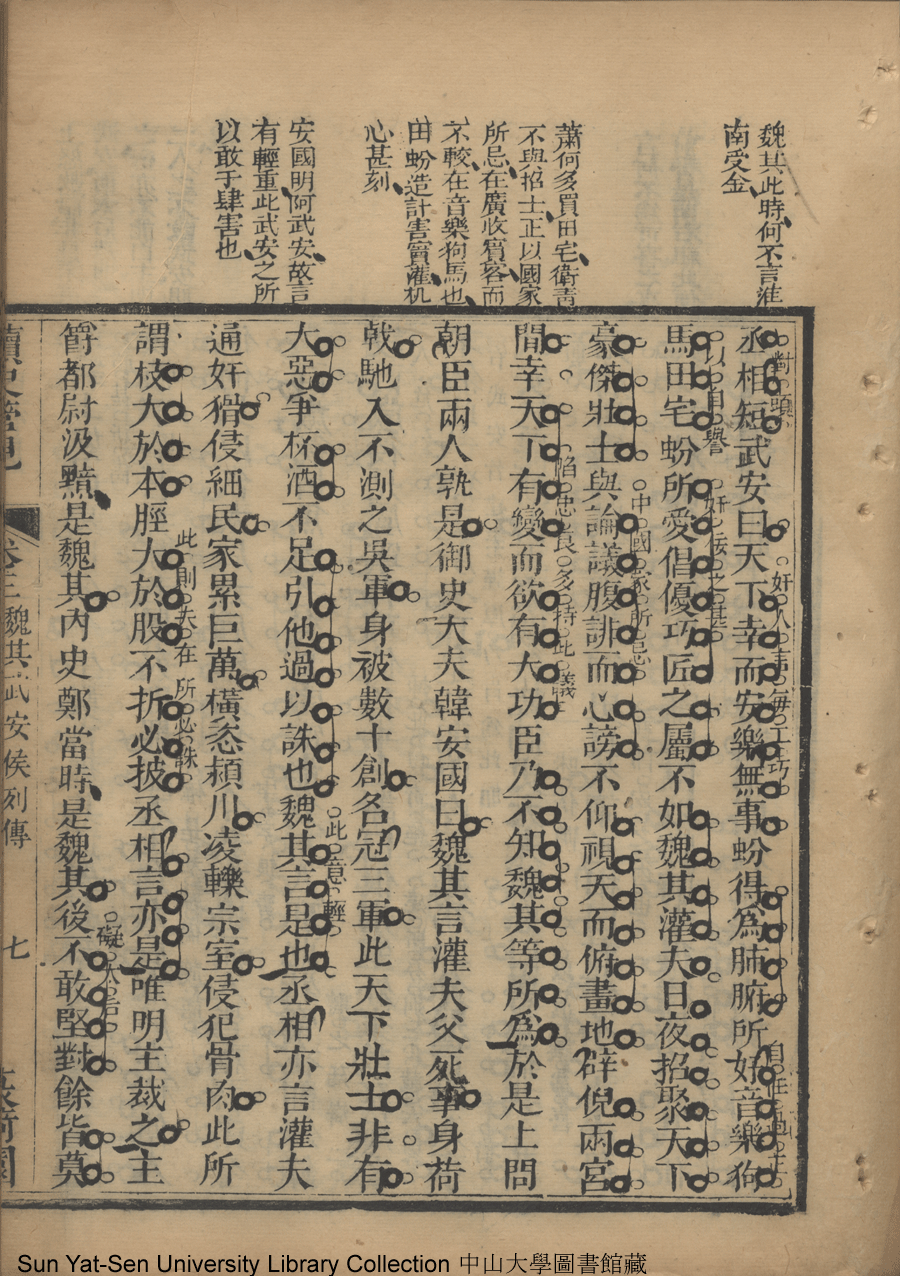 魏其此時何不言淮
南受金
蕭何多買田宅衛青
不與招士正以國家
所忌在廣收賓客而
不較在音樂狗馬也
田蚡造計害竇灌机
心甚刻
安國明阿武安故言
有輕重此武安之所
以敢于肆害也
丞相短武安曰天下幸而安樂無事蚡得爲肺腑所好音樂狗
對頭
奸人害每工巧
馬田宅蚡所愛倡優巧匠之屬不如魏其灌夫日夜招聚天下
以自譽
奸佞之甚
豪傑壯士與論議腹誹而心謗不仰視天而俯畫地辟倪兩宮
中國家所忌
間幸天下有變而欲有大功臣乃不知魏其等所爲於是上問
陷忠良多持此議
朝臣兩人孰是御史大夫韓安國曰魏其言灌夫父死事身荷
戟馳入不測之吳軍身被數十創名冠三軍此天下壯士非有
大惡爭杯酒不足引他過以誅也魏其言是也丞相亦言灌夫
此意輕
通奸猾侵細民家累巨萬橫恣潁川凌轢宗室侵犯骨肉此所
謂枝大於本脛大於股不折必披丞相言亦是唯明主裁之主
此則夫在所必誅
爵都尉汲黯是魏其內史鄭當時是魏其後不敢堅對餘皆莫
礙太后
卷三 魏其武安侯列傳
七
Sun Yat-Sen University Library Collection 中山大學圖書館藏